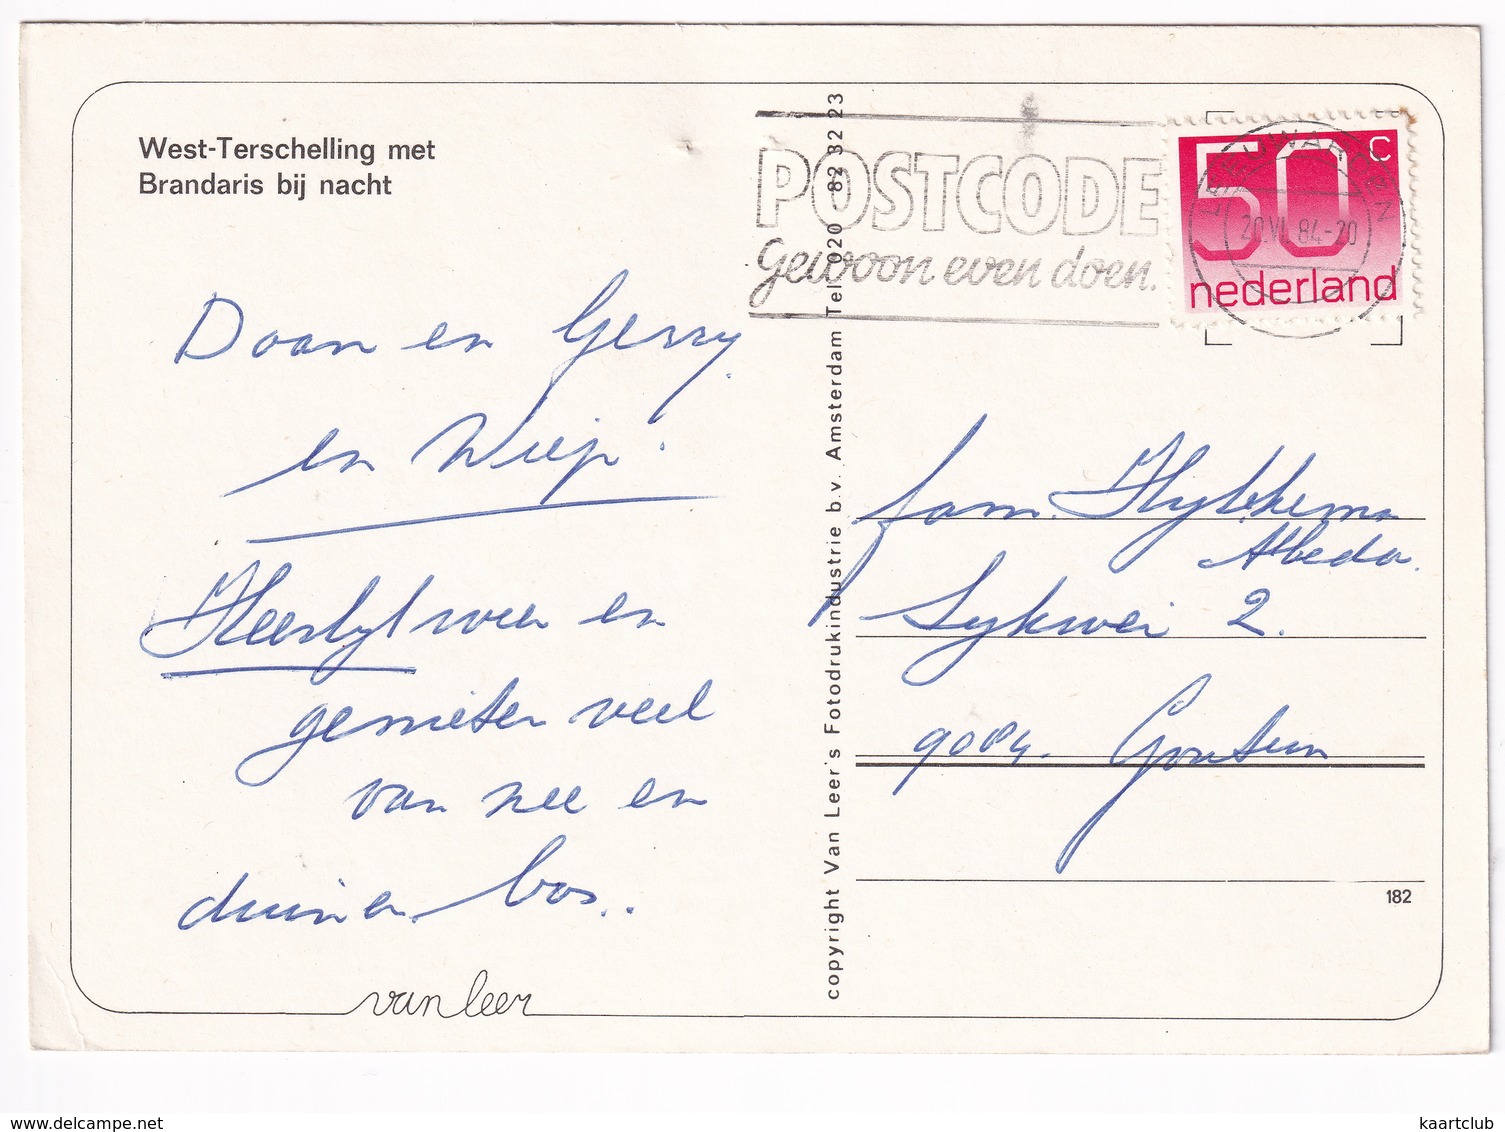 West-Terschelling met
Brandaris bij nacht
POSTCODE
Gewoon even doen.
LEEUWARDEN
20.VI.84-20
50 C
nederland
Daan en Gerry.
en Wiep.
Heerlyk weer en
genieten veel
van zee en
duin en bos..
fam. Hylkema
Albeda.
Sykwei 2.
9084. Goutum
182
copyright Van Leer's Fotodrukindustrie b.v. Amsterdam Tel. 020 - 82 32 23
van leer
www.delcampe.net
kaartclub